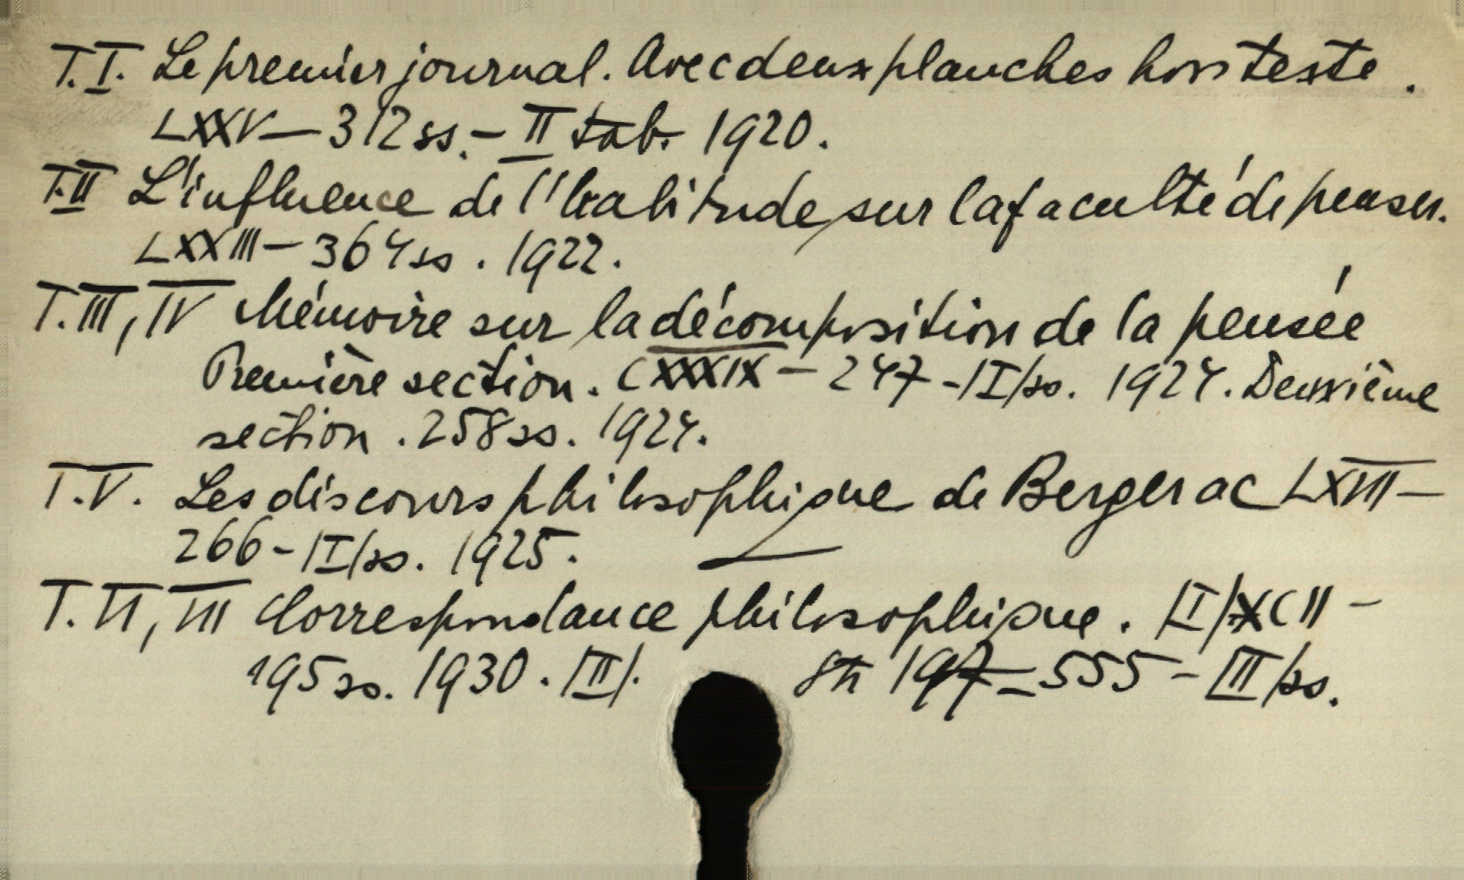 T.I. Le premier journal. Avec deux planches hors texte.
LXXV — 312 ss. – II tab. 1920.
T.II L'influence de l'habitude sur la faculté de penser.
LXXIII – 364 ss. 1922.
T.III, IV Mémoire sur la décomposition de la pensée
Première section. CXXXIX – 247 – /I/ ss. 1924. Deuxième
section. 258 ss. 1924.
T.V. Les discours philosophique de Bergerac LXVIII –
266 – /I/ ss. 1925.
T.VI, VII Correspondance philosophique. /I/ XCII –
195 ss. 1930. /II/. Str 197 – 555 – /III/ ss.